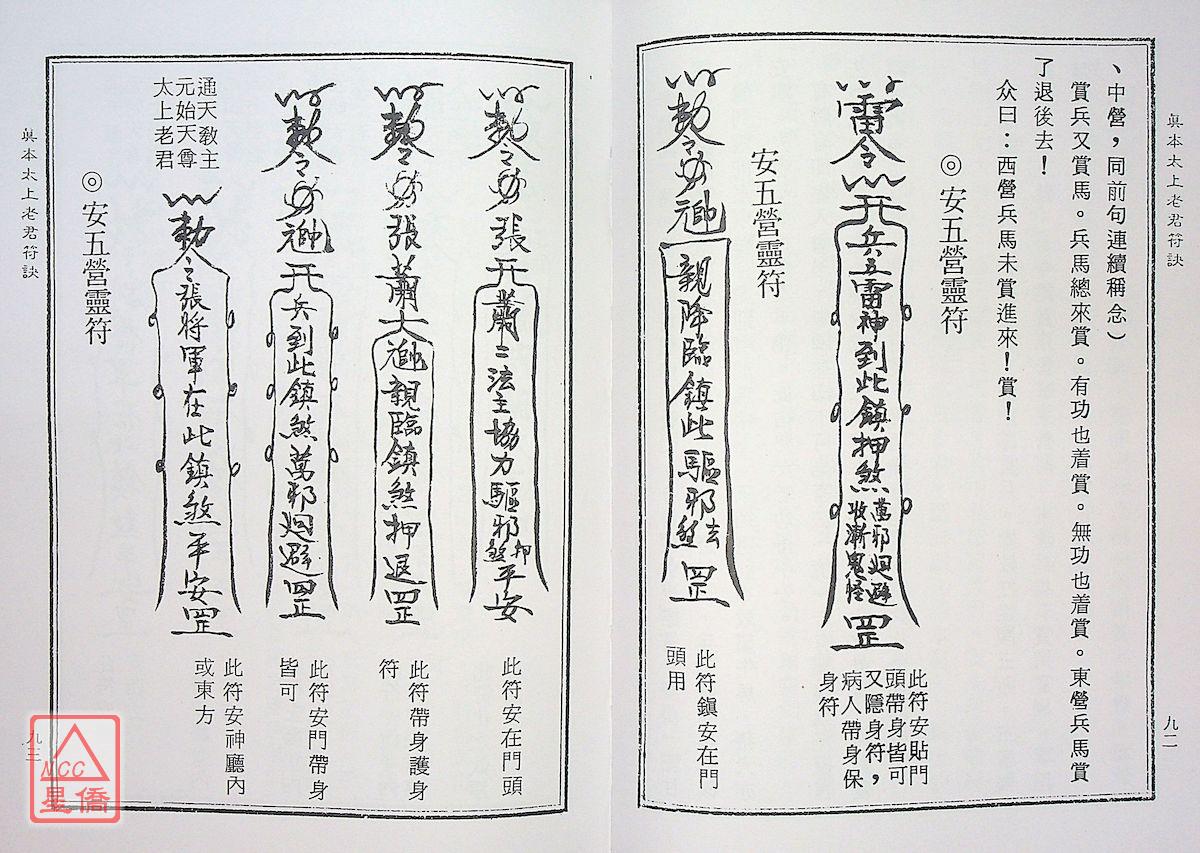 真本太上老君符訣
九二
、中營，同前句連續稱念）
賞兵又賞馬。兵馬總來賞。有功也着賞。無功也着賞。東營兵馬賞
了退後去！
众曰：西營兵馬未賞進來！賞！
◎安五營靈符
雷令
兵五雷神到此鎮押煞
萬邪廻避
收漸鬼怪
罡
此符安貼門
頭帶身皆可
又隱身符，
病人帶身保
身符
安五營靈符
敕令
元帥
親降臨鎮此驅邪
去
煞
罡
此符鎮安在門
頭用
敕令
張
蕭二法主協力驅邪
押
煞
平安
此符安在門頭
敕令
張蕭大帥親臨鎮煞押退罡
此符帶身護身
符
敕令
元帥
兵到此鎮煞萬邪廻避罡
此符安門帶身
皆可
通天敎主
元始天尊
太上老君
敕令
張將軍在此鎮煞平安罡
此符安神廳內
或東方
◎安五營靈符
真本太上老君符訣
九三
NCC
星僑